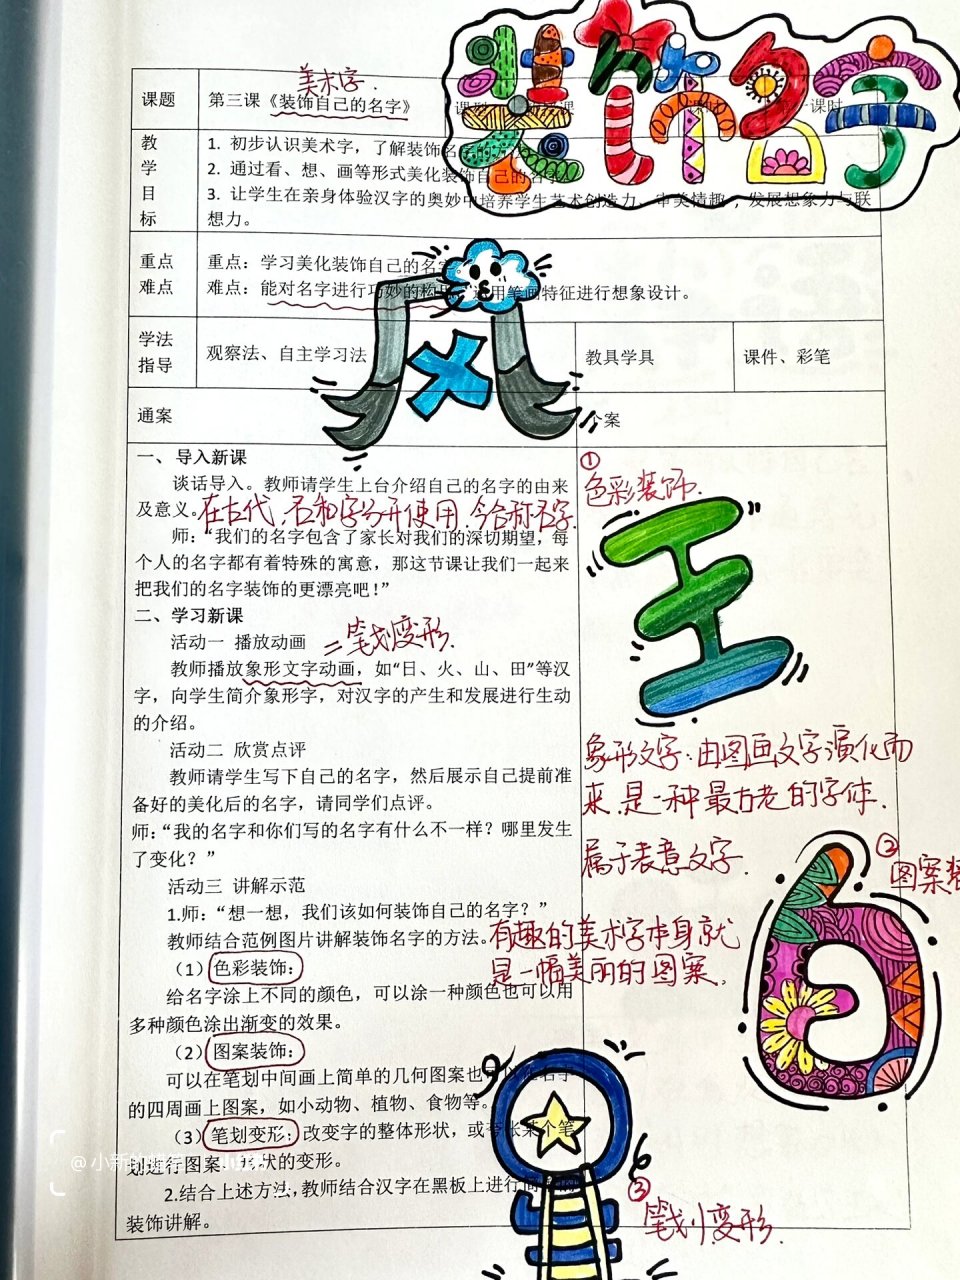 装饰名字
美术字
课题
第三课《装饰自己的名字》
课时
教学目标
1. 初步认识美术字，了解装饰名字的
2. 通过看、想、画等形式美化装饰自己的名
3. 让学生在亲身体验汉字的奥妙中培养学生艺术创造力、审美情趣，发展想象力与联
想力。
重点
难点
重点：学习美化装饰自己的名字
难点：能对名字进行巧妙的构思，运用笔画特征进行想象设计。
风
学法
指导
观察法、自主学习法
教具学具
课件、彩笔
通案
个案
一、导入新课
谈话导入。教师请学生上台介绍自己的名字的由来
及意义。
在古代,名和字分开使用.今合称名字.
师：“我们的名字包含了家长对我们的深切期望，每
个人的名字都有着特殊的寓意，那这节课让我们一起来
把我们的名字装饰的更漂亮吧！”
二、学习新课
活动一 播放动画
笔划变形.
教师播放象形文字动画，如“日、火、山、田”等汉
字，向学生简介象形字，对汉字的产生和发展进行生动
的介绍。
活动二 欣赏点评
教师请学生写下自己的名字，然后展示自己提前准
备好的美化后的名字，请同学们点评。
师：“我的名字和你们写的名字有什么不一样？哪里发生
了变化？”
活动三 讲解示范
1.师：“想一想，我们该如何装饰自己的名字？”
教师结合范例图片讲解装饰名字的方法。
有趣的美术字本身就
是一幅美丽的图案.
（1）色彩装饰：
给名字涂上不同的颜色，可以涂一种颜色也可以用
多种颜色涂出渐变的效果。
（2）图案装饰：
可以在笔划中间画上简单的几何图案也可以在名字
的四周画上图案，如小动物、植物、食物等。
（3）笔划变形：改变字的整体形状，或夸张某个笔
划进行图案形状的变形。
2.结合上述方法，教师结合汉字在黑板上进行简单的
装饰讲解。
①
色彩装饰.
王
象形文字:由图画文字演化而
来,是一种最古老的字体.
属于表意文字.
②
图案装
③
笔划变形.
@小新的
小红书